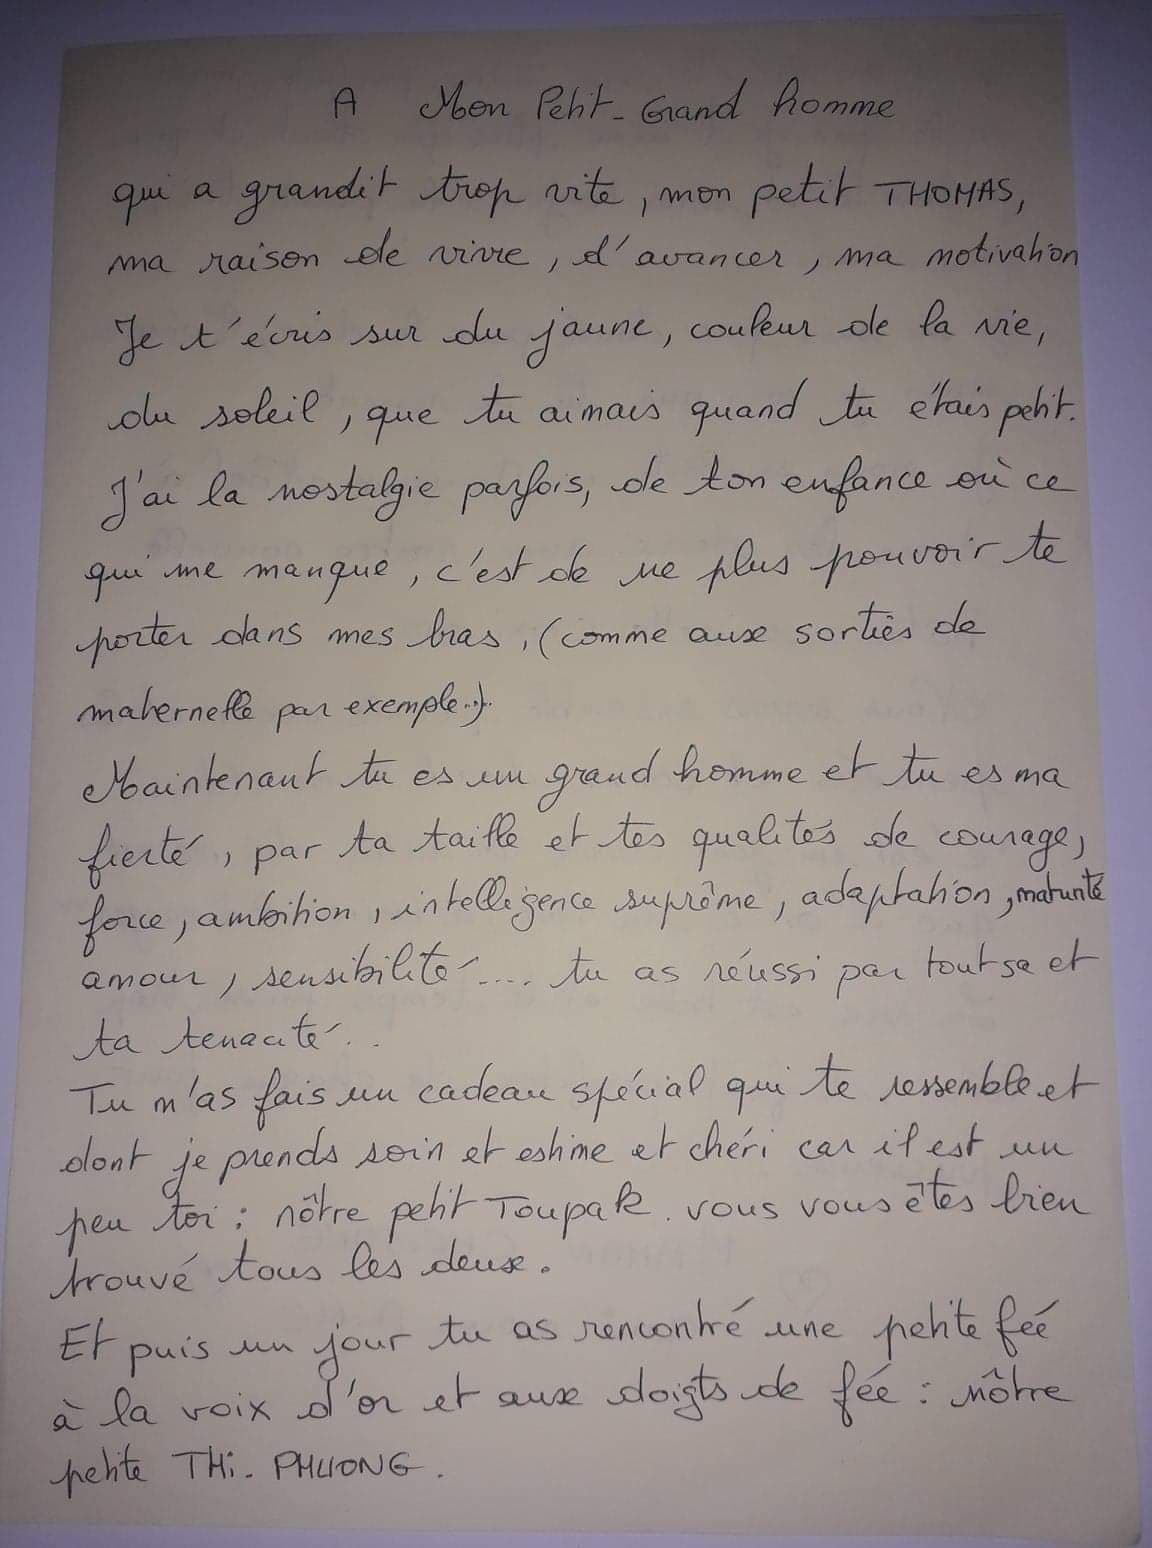 A Mon Petit-Grand homme
qui a grandit trop vite, mon petit THOMAS,
ma raison de vivre, d'avancer, ma motivation
Je t'écris sur du jaune, couleur de la vie,
du soleil, que tu aimais quand tu étais petit.
J'ai la nostalgie parfois, de ton enfance où ce
qui me manque, c'est de ne plus pouvoir te
porter dans mes bras, (comme aux sorties de
maternelle par exemple..).
Maintenant tu es un grand homme et tu es ma
fierté, par ta taille et tes qualités de courage,
force, ambition, intelligence suprême, adaptation, maturité
amour, sensibilité.... tu as réussi par tout sa et
ta tenacité..
Tu m'as fais un cadeau spécial qui te ressemble et
dont je prends soin et estime et chéri car il est un
peu toi : nôtre petit Toupak. vous vous êtes bien
trouvé tous les deux.
Et puis un jour tu as rencontré une petite féé
à la voix d'or et aux doigts de fée : nôtre
petite THi-PHUONG.